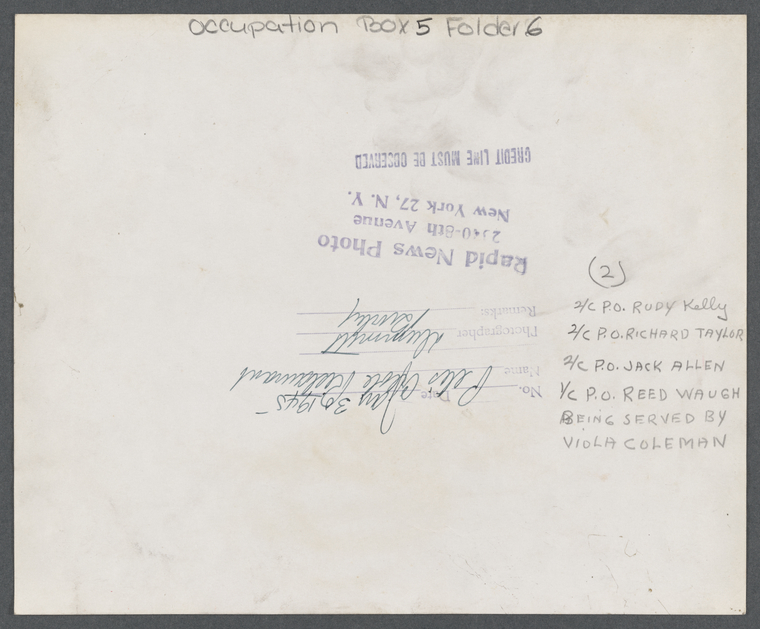 Occupation Box 5 Folder 6
(2)
2/c P.O. RUDY Kelly
2/c P.O. RICHARD TAYLOR
2/c P.O. JACK ALLEN
1/c P.O. REED WAUGH
BEING SERVED BY
VIOLA COLEMAN
No. Date Jan 30, 1945
Name Pete's Restaurant
Photographer
Remarks:
Rapid News Photo
2340-8th Avenue
New York 27, N. Y.
CREDIT LINE MUST BE OBSERVED